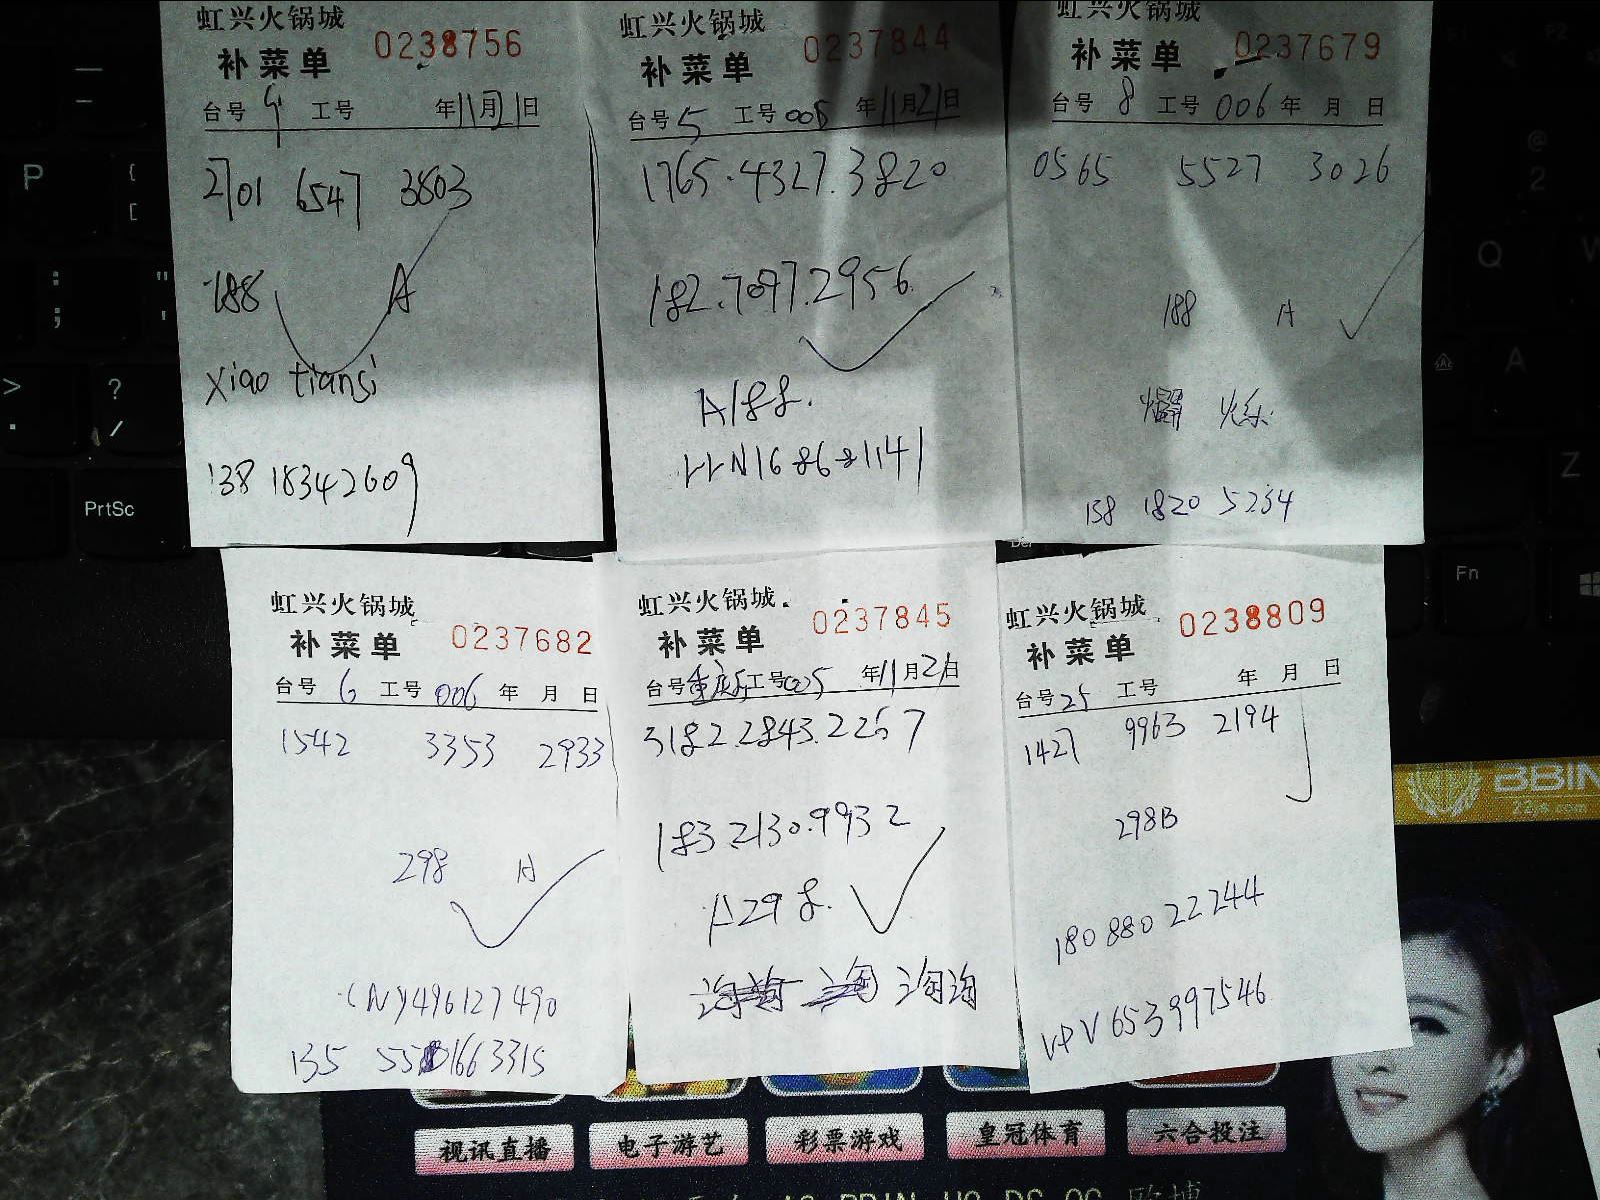 虹兴火锅城
补菜单 0238756
台号 9 工号 年11月21日
2701 6547 3803
188 A
xiao tiansi
138 18342609
虹兴火锅城
补菜单 0237844
台号 5 工号 005 年11月21日
1765.4327.3820
182.7097.2956
A188.
LLN168681141
虹兴火锅城
补菜单 0237679
台号 8 工号 006 年 月 日
0565 5527 3026
188 A
138 1820 5234
虹兴火锅城
补菜单 0237682
台号 6 工号 006 年 月 日
1542 3353 2933
298 A
(N)496127490
135 551663315
虹兴火锅城
补菜单 0237845
台号 重庆厅 工号 005 年11月21日
3182.2843.2267
183.2130.9932
A298.
海海
虹兴火锅城
补菜单 0238809
台号 25 工号 年 月 日
1427 9963 2194
298B
180 880 22244
VPV653997546
P
PrtSc
Fn
Q
A
Z
BBIN
视讯直播 电子游艺 彩票游戏 皇冠体育 六合投注